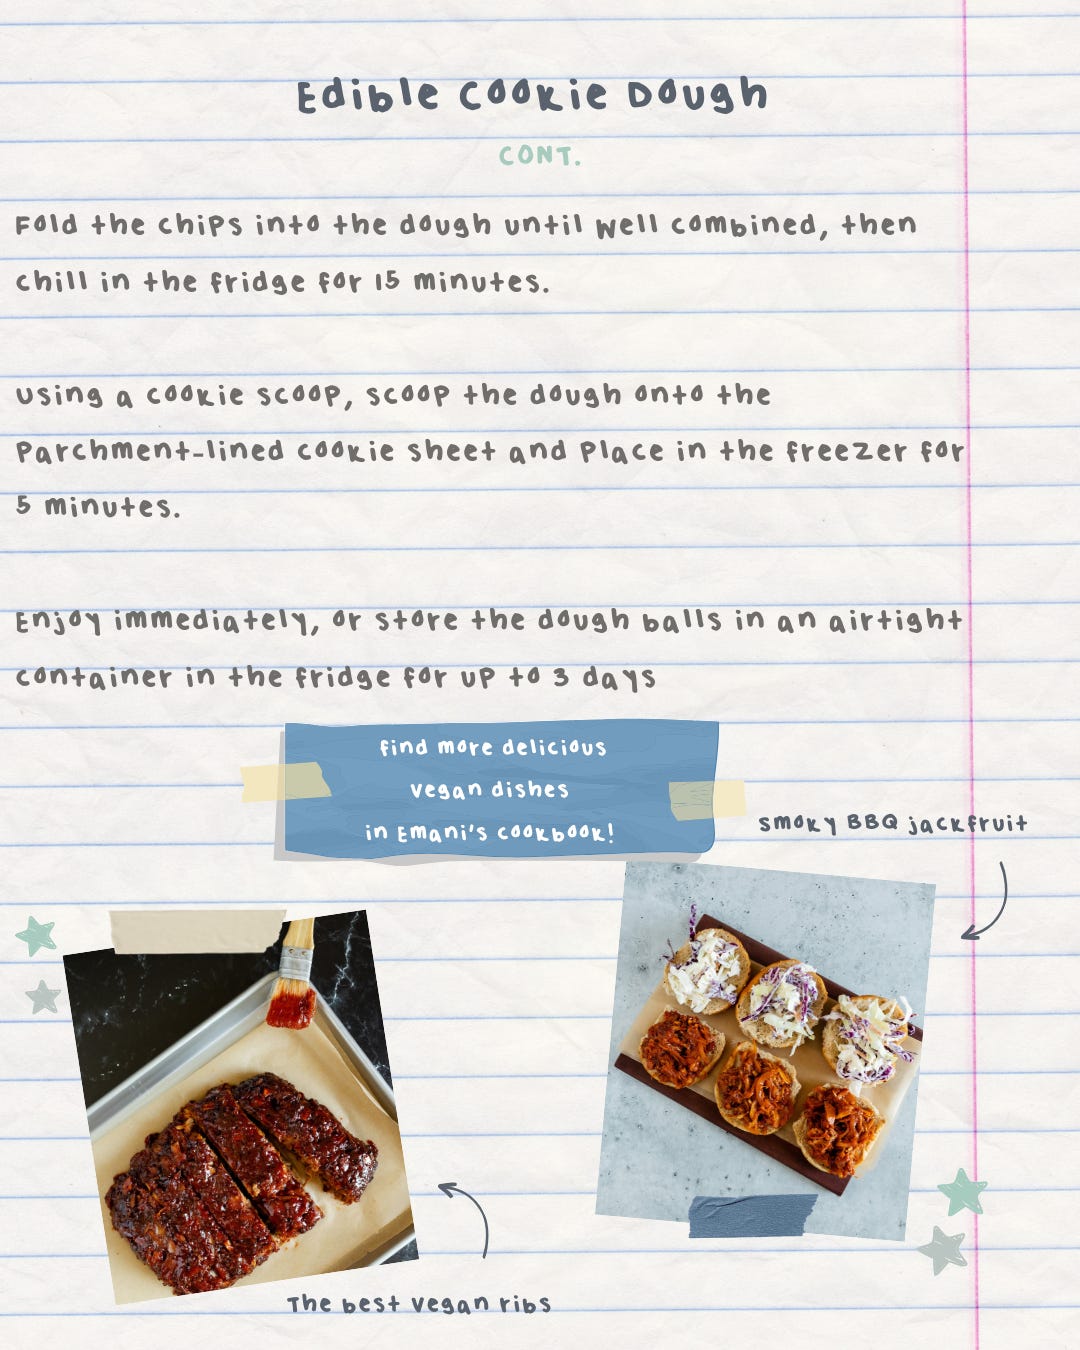 Edible Cookie Dough
CONT.
Fold the chips into the dough until well combined, then
chill in the fridge for 15 minutes.
Using a cookie scoop, scoop the dough onto the
parchment-lined cookie sheet and place in the freezer for
5 minutes.
Enjoy immediately, or store the dough balls in an airtight
container in the fridge for up to 3 days
find more delicious
vegan dishes
in Emani's cookbook!
smoky BBQ jackfruit
The best vegan ribs